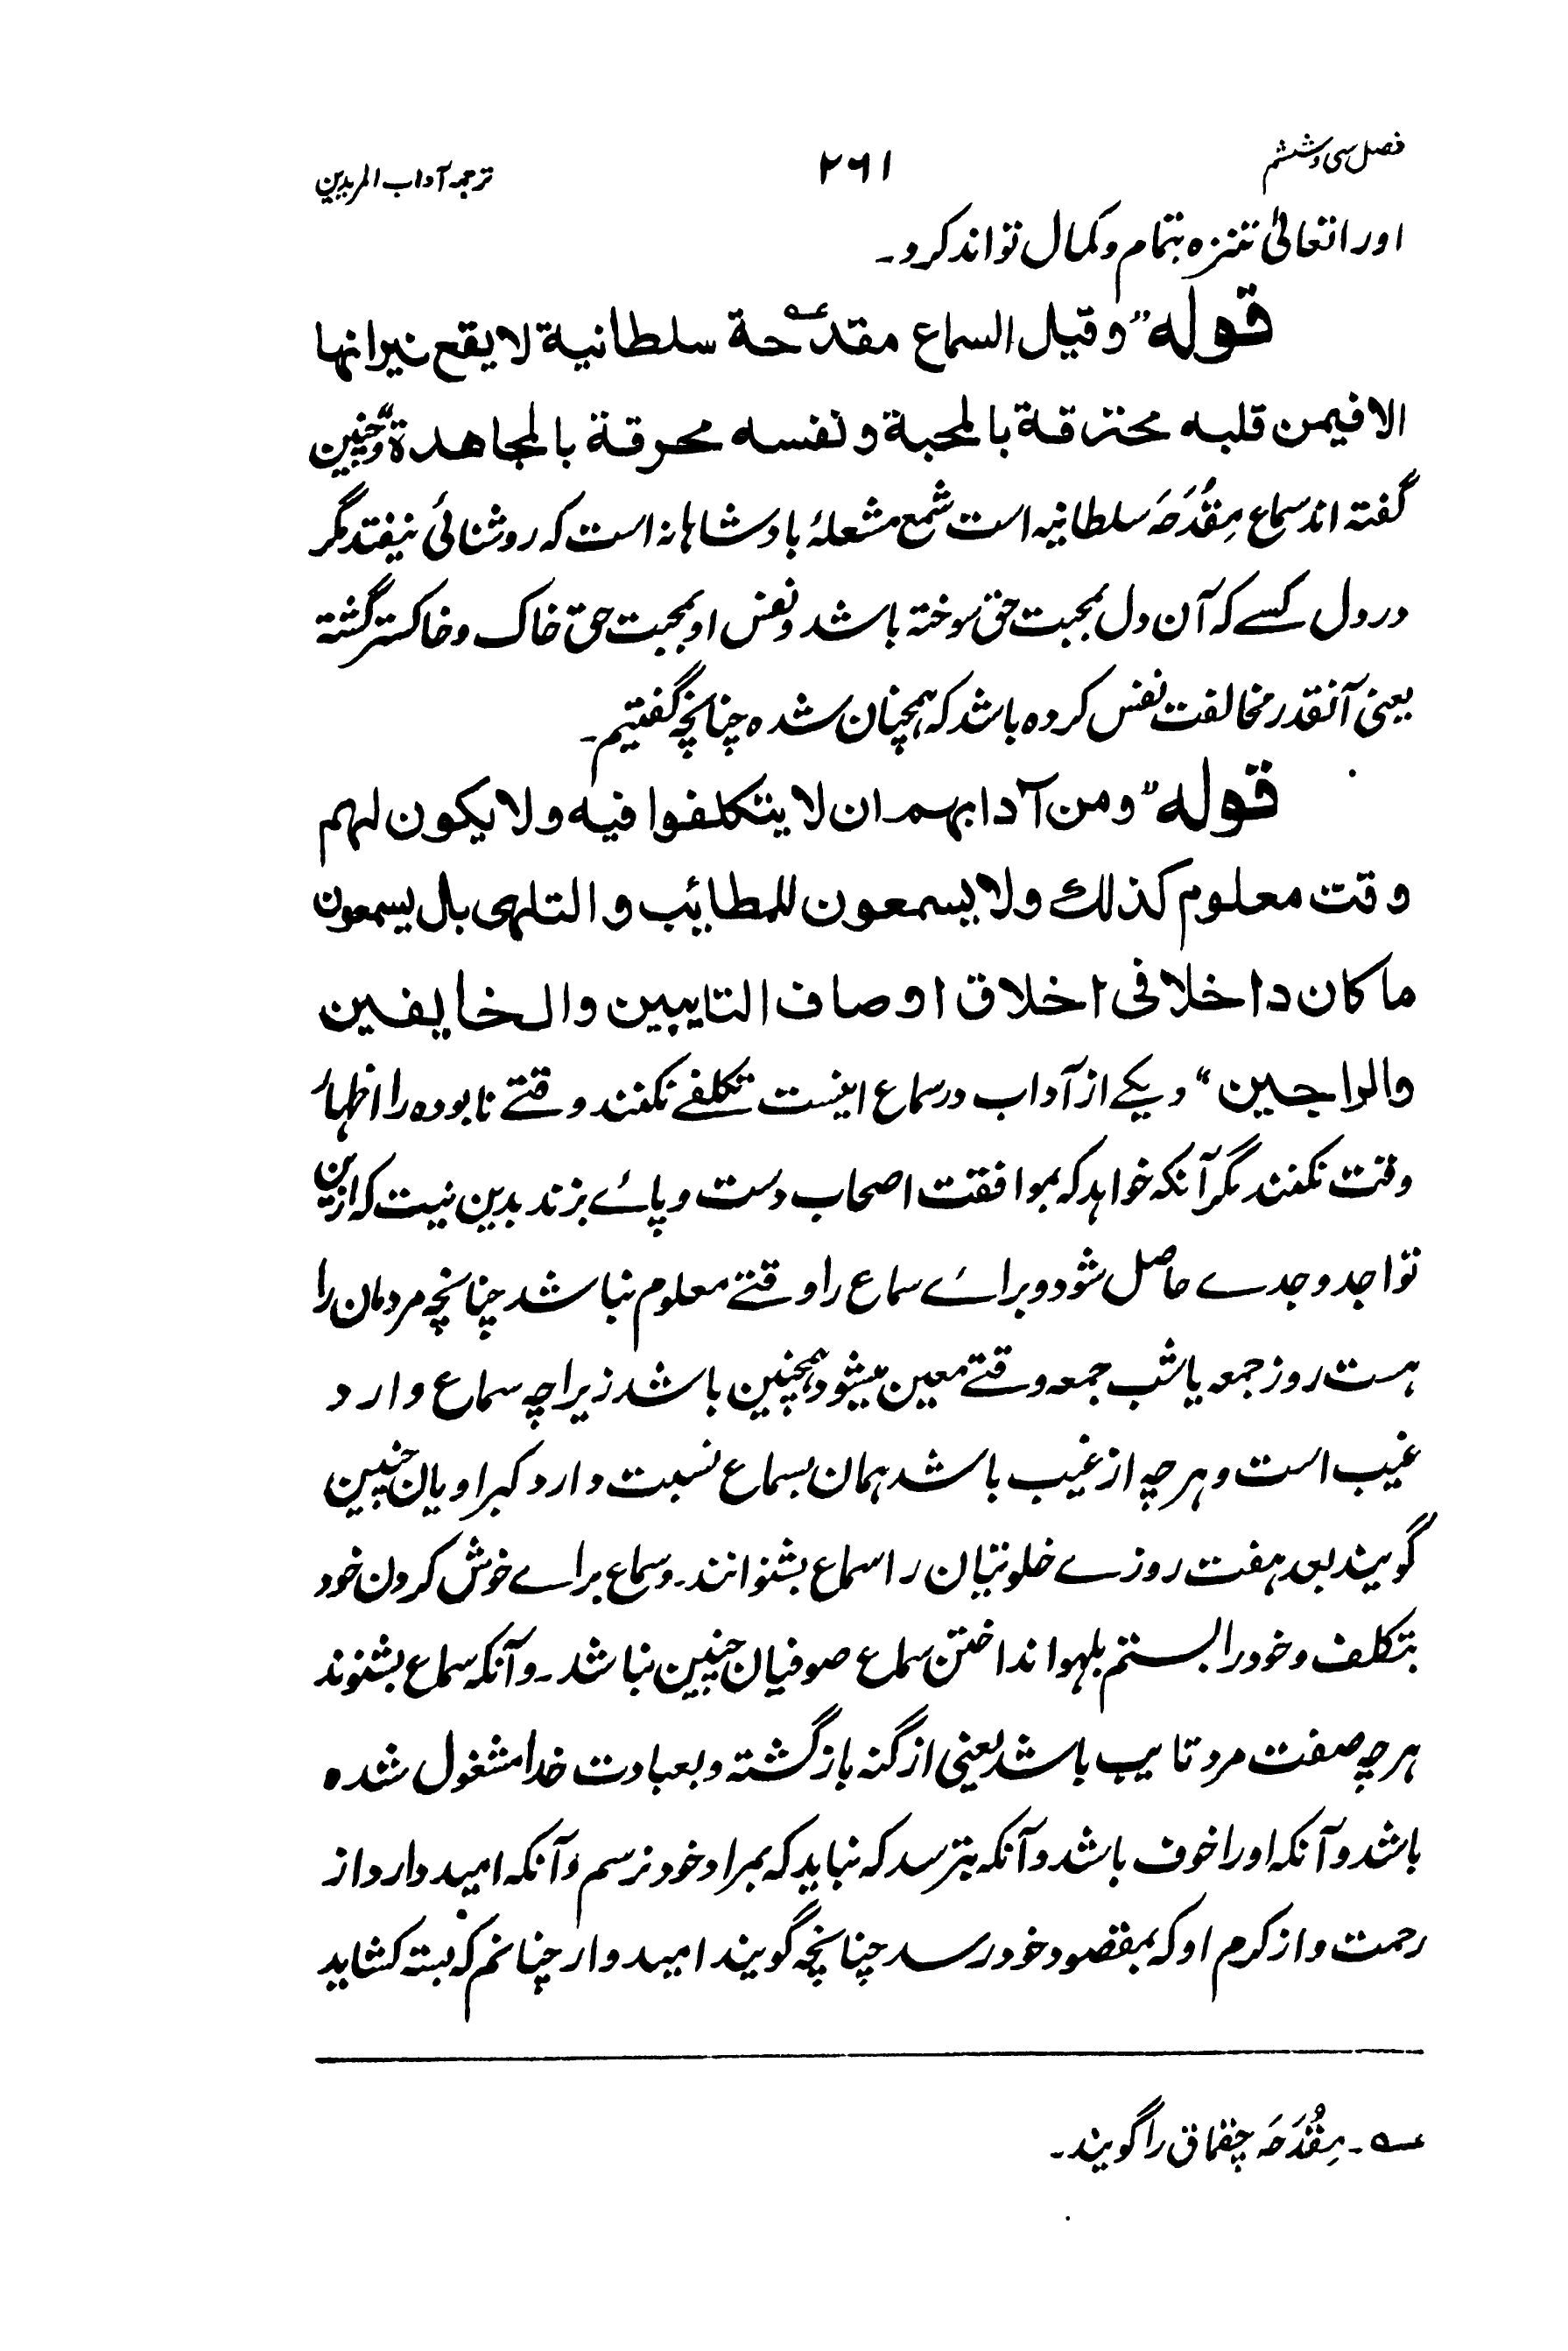 فصل سی و ششم
۲۶۱
ترجمہ آداب المریدین
اور اتعالیٰ تنزہ بتمام وکمال تواند کرد۔
قوله "وقيل السماع مقدحةعہ سلطانية لايقع نيرانها
الا فيمن قلبه محترقة بالمحبة ونفسه محرقة بالمجاهدة" وچنین
گفته اند سماع مِقْدَحَہ سلطانیہ است شمع مشعلۂ بادشاہانہ است کہ روشنائی نیفتد مگر
در دل کسے کہ آن دل بمحبت حق سوختہ باشد و نفس او بمحبت حق خاک و خاکستر گشتہ
یعنی آنقدر مخالفت نفس کردہ باشد کہ ہمچنان شدہ چنانچہ گفتیم۔
قوله "ومن آدابهم ان لا يتكلفوا فيه ولا يكون لهم
وقت معلوم كذلك ولا يسمعون للمطائب والتلهى بل يسمعون
ما كان داخلا فى اخلاق اوصاف التايبين والخايفين
والراجين" ویکے از آداب در سماع اینست تکلفے نکنند وقتے نابودہ را اظہار
وقت نکنند مگر آنکہ خواہد کہ بموافقت اصحاب دست و پاے بزند بدین نیت کہ ازین
تواجد وجدے حاصل شود و براے سماع را وقتے معلوم نباشد چنانچہ مردمان را
ہست روز جمعہ یا شب جمعہ وقتے معین میشود ہمچنین باشد زیراچہ سماع وارد
غیب است و ہرچہ از غیب باشد ہمان بسماع نسبت دارد کبراویان چنین
گویند بعد ہفت روزے خلوتیان را سماع بشنوانند۔ وسماع براے خوش کردن خود
بتکلف و خود را بستم بلہو انداختن سماع صوفیان چنین نباشد۔ وآنکہ سماع بشنوند
ہرچہ صفت مرد تایب باشد یعنی از گنہ بازگشتہ و بعبادت خدا مشغول شدہ
باشد وآنکہ اورا خوف باشد وآنکہ بترسد کہ نباید کہ بمراد خود نرسم وآنکہ امید دارد از
رحمت و از کرم او کہ بمقصود خود رسد چنانچہ گویند امیدوار چنانم کہ بستہ کشاید
عہ۔ مِقْدَحَہ چقماق را گویند۔